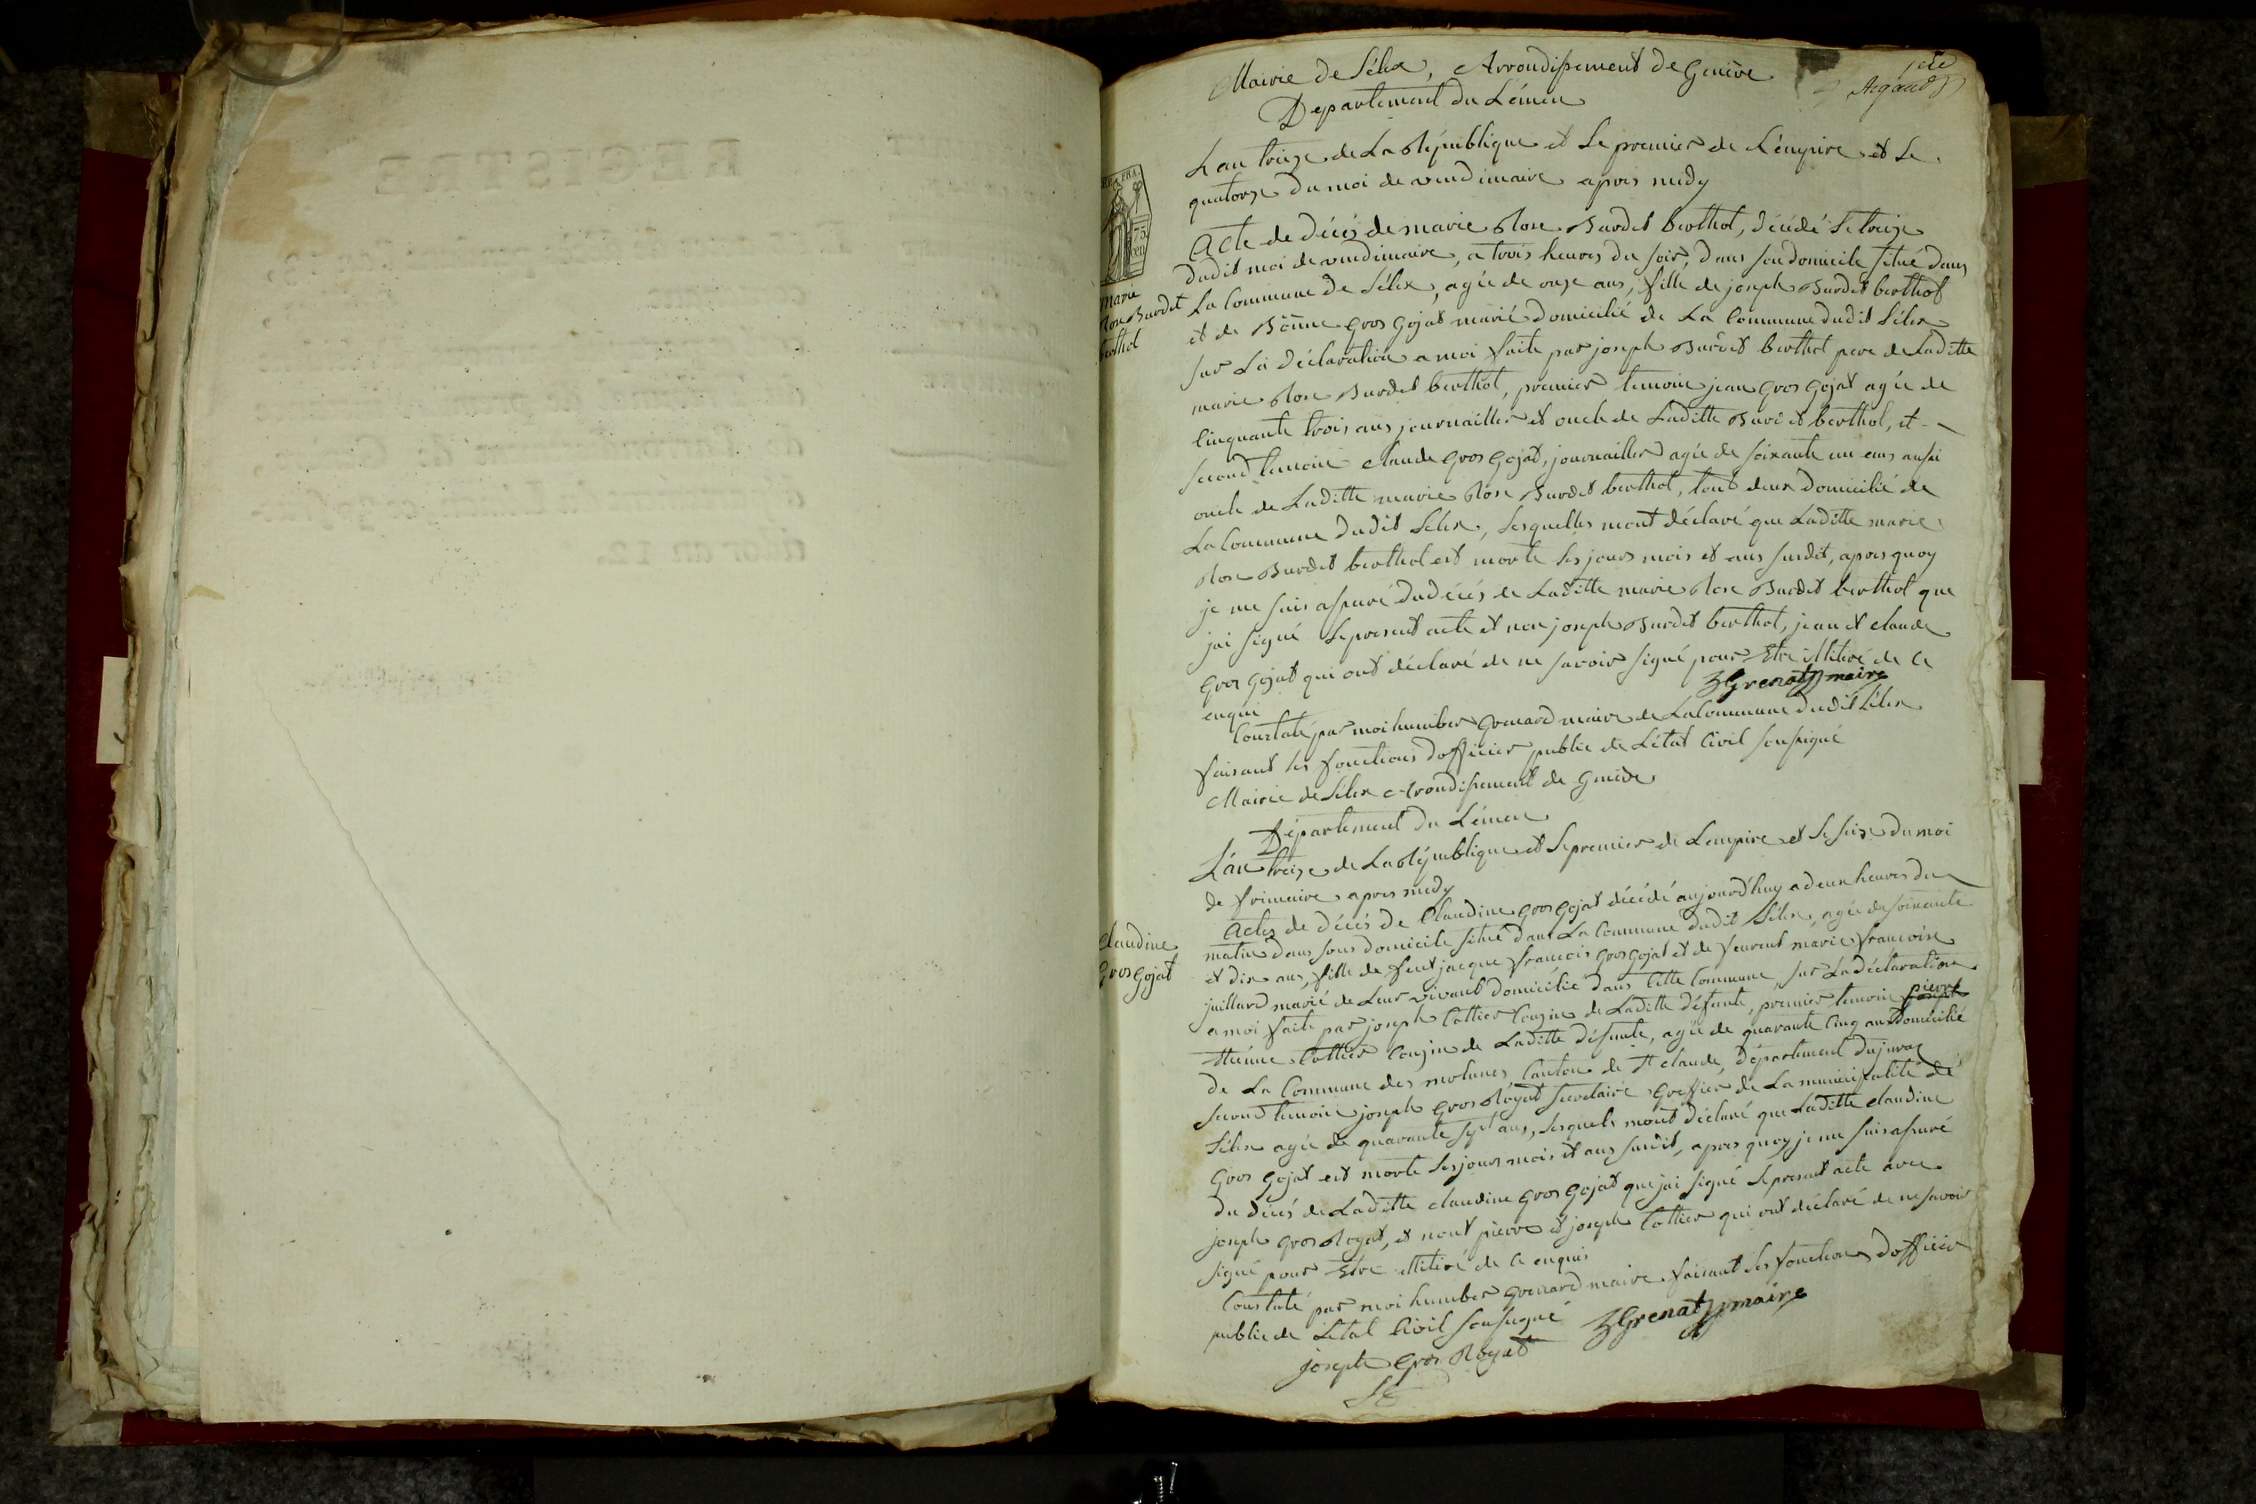 Mairie de Lélex, Arrondissement de Genève
Departement du Léman
1ere
Argoud
L'an treize de La République et Le premier de L'empire et Le
quatorze du moi de vendimaire apres midy
Acte de décés de marie Rose Burdet berthot, décédé Le treize
dudit moi de vendimaire, a trois heures du soir, dans son domicile situé dans
La Commune de Lélex, agée de onze ans, fille de joseph Burdet berthot
et de Bonne gros gojat marié domicilié de La Commune dudit Lélex
sur La déclaration a moi faite par joseph Burdet berthot pere de Laditte
marie Rose Burdet berthot, premier temoin jean gros gojat agée de
Cinquante trois ans journaillier et oncle de Laditte Burdet berthot, et
second temoin claude gros gojat, journaillier agée de soixante un ans aussi
oncle de Laditte marie Rose Burdet berthot, tout deux domicilié de
La Commune dudit Lélex, Lesquelles mont déclaré que Laditte marie
Rose Burdet berthot est morte Les jours mois et ans susdit, apres quoy
je me suis assuré du décés de Laditte marie Rose Burdet berthot que
jai signé Le present acte et non joseph Burdet berthot, jean et claude
gros gojat qui ont déclaré de ne savoir signé pour Etre illitiré de Ce
enqui
hGrenat maire
Constaté par moi humber grenard maire de La Commune dudit Lélex
faisant Les fonctions dofficier public de Létat Civil soussigné
Marie
Rose Burdet
berthot
REP. FRA.
75
cen
Mairie de Lélex Arrondissement de Genève
Département du Léman
L'an treize de La République et Le premier de Lempire et Le seize du moi
de frimaire apres midy
Actes de décés de Claudine gros gojat décédé aujourd'huy a deux heures du
matin dans sons domicile situé dans La Commune dudit Lélex, agée de soixante
et dix ans, fille de feut jacque francois gros gojat et de feuent marie francoise
juillard marié de Leur vivant domicilié dans Cette Commune, sur La déclaration
a moi faite par joseph Cottier Cousin de Laditte défunte, premier temoin pierre
Etienne Cottier Cousin de Laditte défunte, agée de quarante Cinq ans domicilié
de La Commune des molunes Canton de St claude, département dujura
second temoin joseph gros Royat secretaire greffier de La municipalité de
Lélex agée de quarante sept ans, Lesquels mont déclaré que Laditte claudine
gros gojat est morte Les jours mois et ans susdit, apres quoy je me suis assuré
du décés de Laditte claudine gros gojat que jai signé Le present acte avec
joseph gros Royat, et nont pierre et joseph Cottier qui ont déclaré de ne savoir
signé pour Etre illitiré de Ce enquis
Constaté par moi humber grenard maire faisant Les fonctions dofficier
public de Létat Civil soussigné
hGrenat maire
joseph gros Royat
Claudine
gros gojat